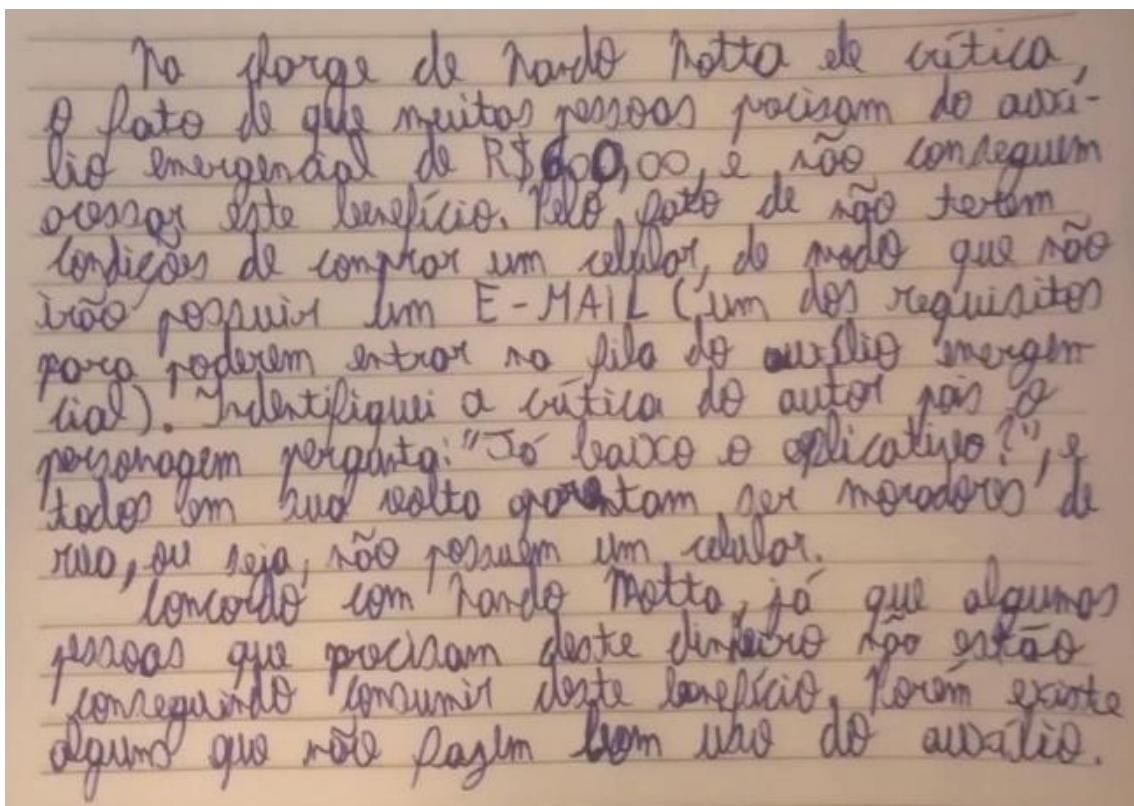 Na charge de Nando Motta ele crítica,
o fato de que muitas pessoas precisam do auxí-
lio emergencial de R$600,00, e não conseguem
acessar este benefício. Pelo fato de não terem
condições de comprar um celular, de modo que não
irão possuir um E-MAIL (um dos requisitos
para poderem entrar na fila do auxílio emergen
cial). Indentifiquei a crítica do autor pois o
personagem pergunta: "Já baixo o aplicativo?", e
todos em sua volta aparentam ser moradores de
rua, ou seja, não possuem um celular.
Concordo com Nando Motta, já que algumas
pessoas que precisam deste dinheiro não estão
conseguindo consumir deste benefício. Porém existe
alguns que não fazem bom uso do auxílio.